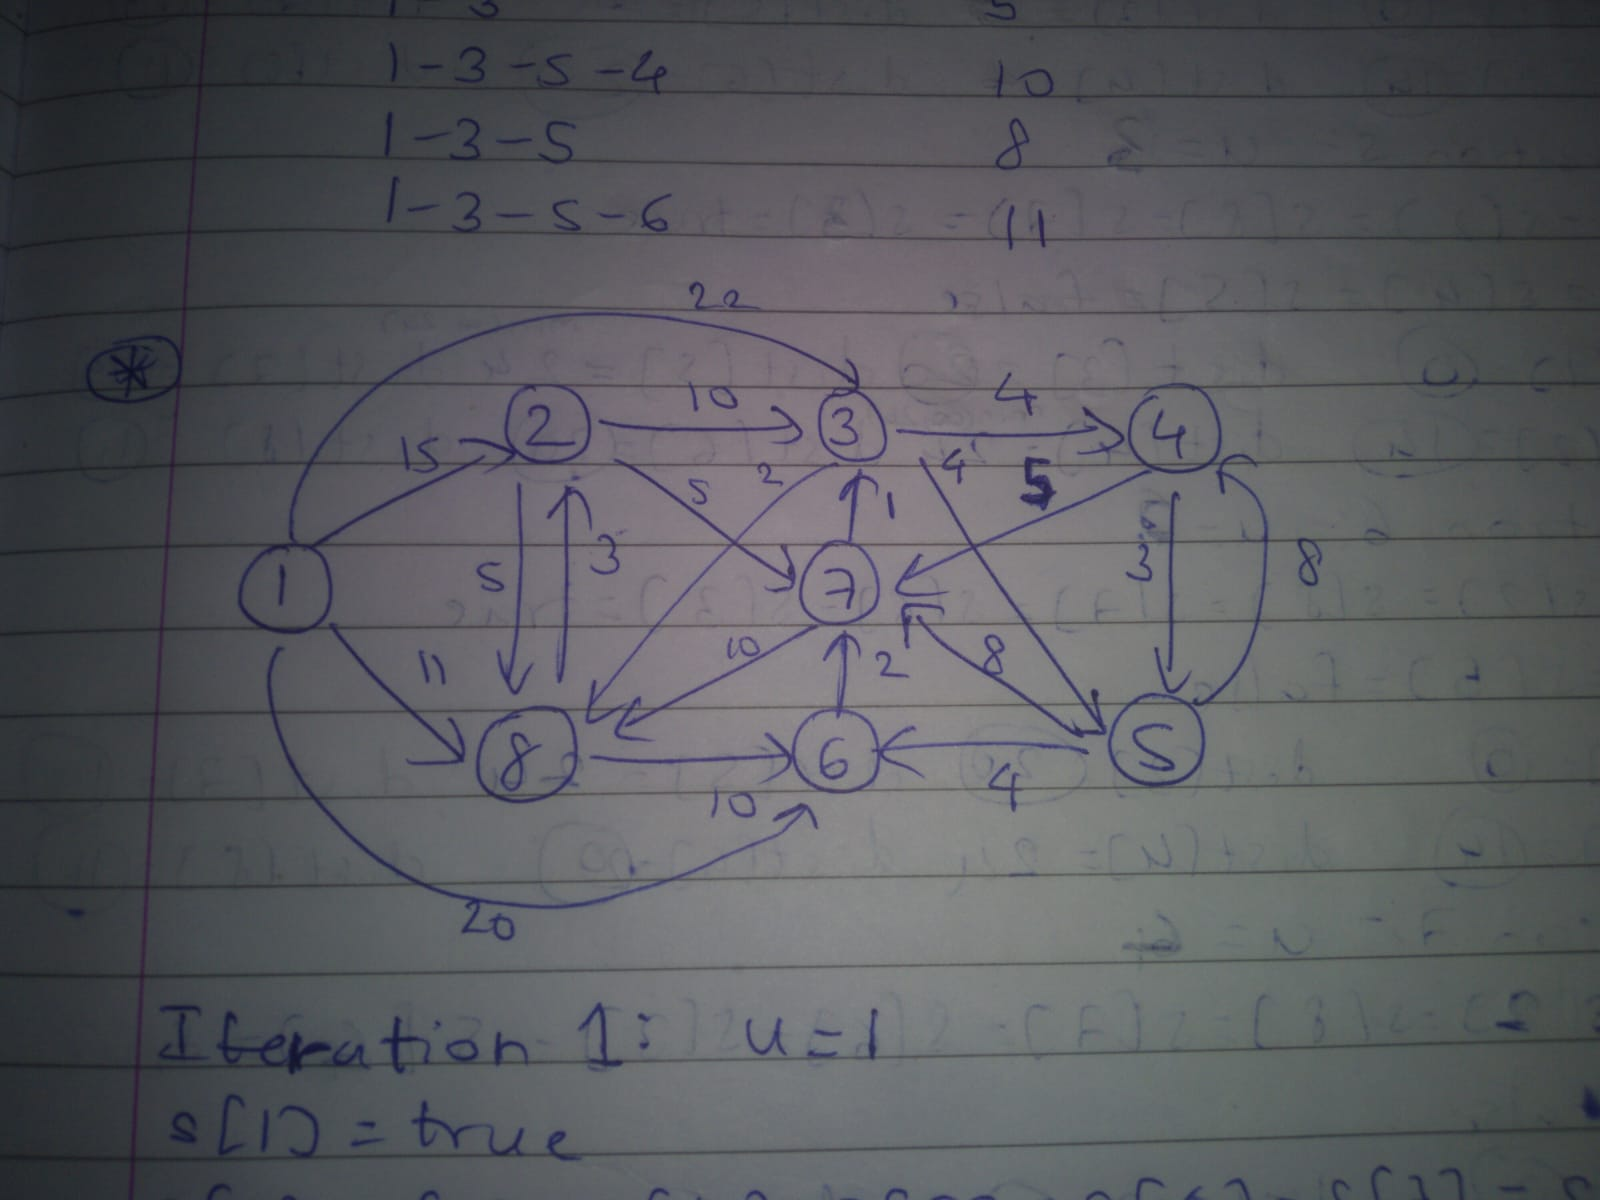 1-3 5
1-3-5-4 10
1-3-5 8
1-3-5-6 11
22
*
2 10 3 4 4
15 2 4 5
5
1 5 3 7 1 3 8
11 10 2 8
8 6 5
10 4
20
Iteration 1: u=1
s[1] = true